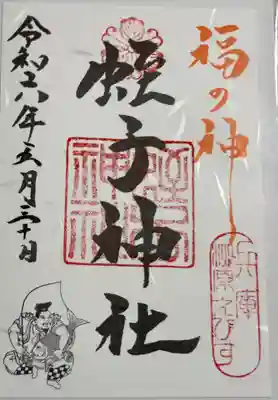 福の神
蛭子神社
令和六年五月三十日
兵庫
柳原えびす
蛭子
神社